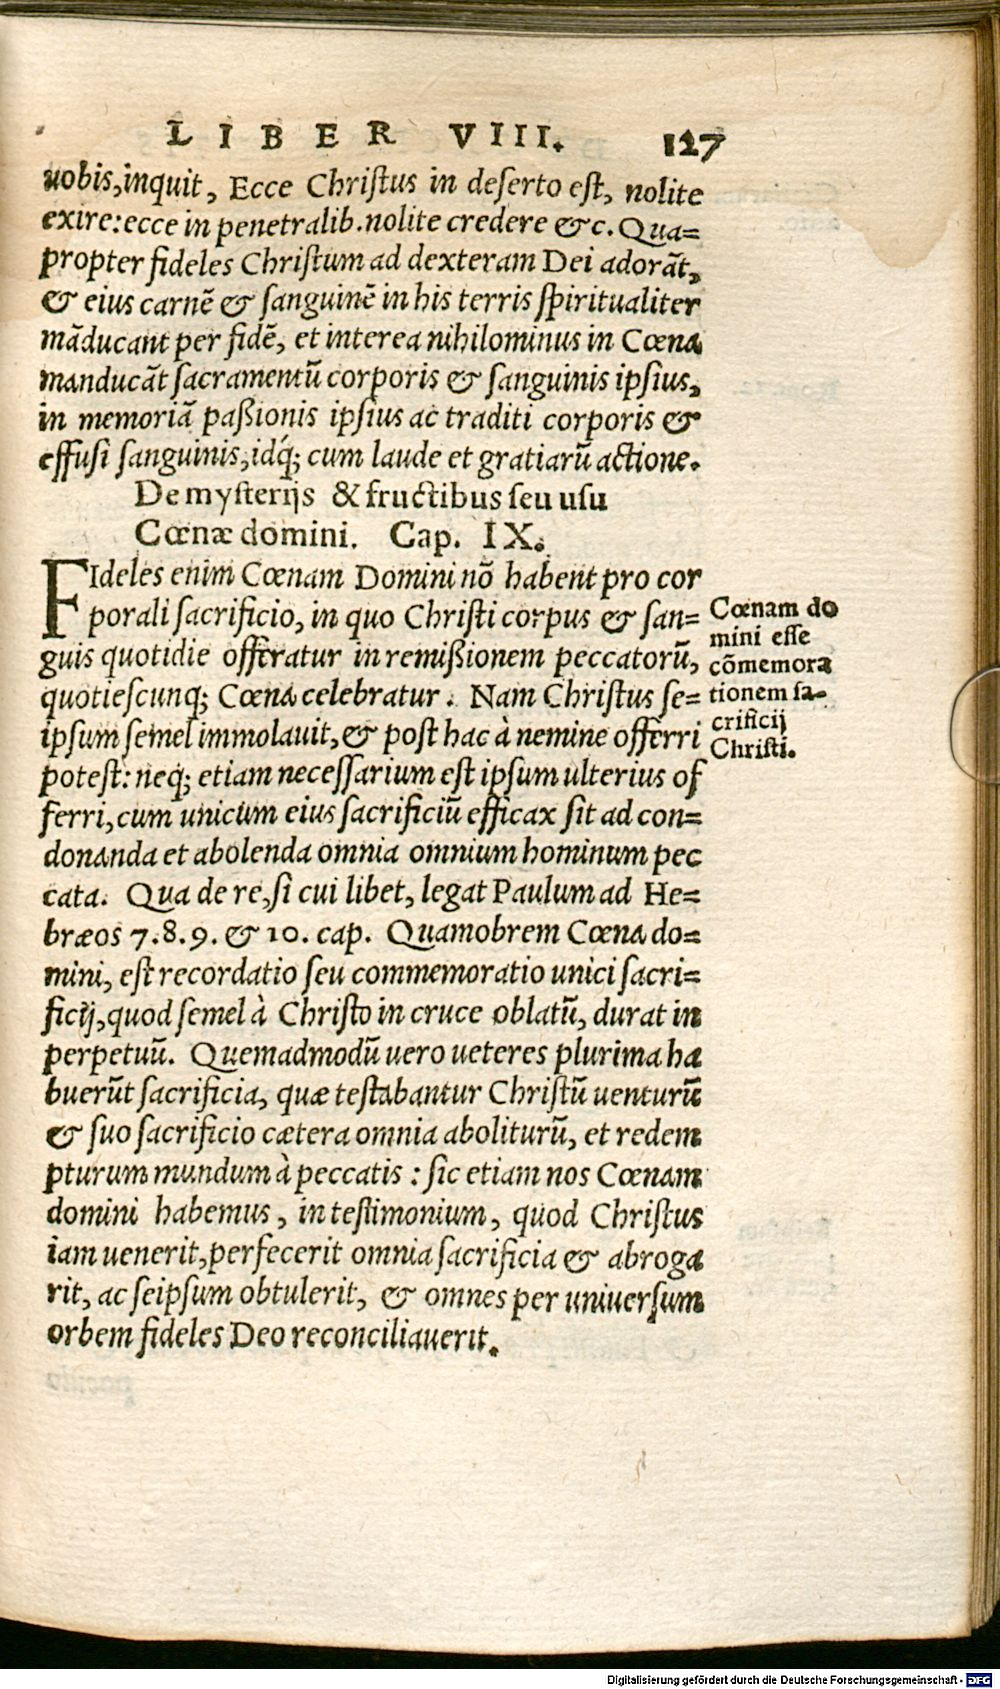 LIBER VIII. 127
uobis, inquit, Ecce Christus in deserto est, nolite
exire: ecce in penetralib. nolite credere &c. Qua=
propter fideles Christum ad dexteram Dei adorãt,
& eius carnẽ & sanguinẽ in his terris spiritualiter
mãducant per fidẽ, et interea nihilominus in Cœna
manducãt sacramentũ corporis & sanguinis ipsius,
in memoriã paßionis ipsius ac traditi corporis &
effusi sanguinis, idq́; cum laude et gratiarũ actione.
De mysterijs & fructibus seu usu
Cœnæ domini. Cap. IX.
FIdeles enim Cœnam Domini nõ habent pro cor
porali sacrificio, in quo Christi corpus & san=
guis quotidie offeratur in remißionem peccatorũ,
quotiescunq; Cœna celebratur. Nam Christus se=
ipsum semel immolauit, & post hac à nemine offerri
potest: neq; etiam necessarium est ipsum ulterius of
ferri, cum unicum eius sacrificiũ efficax sit ad con=
donanda et abolenda omnia omnium hominum pec
cata. Qua de re, si cui libet, legat Paulum ad He=
bræos 7.8.9. & 10. cap. Quamobrem Cœna do=
mini, est recordatio seu commemoratio unici sacri=
ficij, quod semel à Christo in cruce oblatũ, durat in
perpetuũ. Quemadmodũ uero ueteres plurima ha
buerũt sacrificia, quæ testabantur Christũ uenturũ
& suo sacrificio cætera omnia aboliturũ, et redem
pturum mundum à peccatis: sic etiam nos Cœnam
domini habemus, in testimonium, quod Christus
iam uenerit, perfecerit omnia sacrificia & abroga
rit, ac seipsum obtulerit, & omnes per uniuersum
orbem fideles Deo reconciliauerit.
Cœnam do
mini esse
cõmemora
tionem sa=
crificij
Christi.
Digitalisierung gefördert durch die Deutsche Forschungsgemeinschaft - DFG